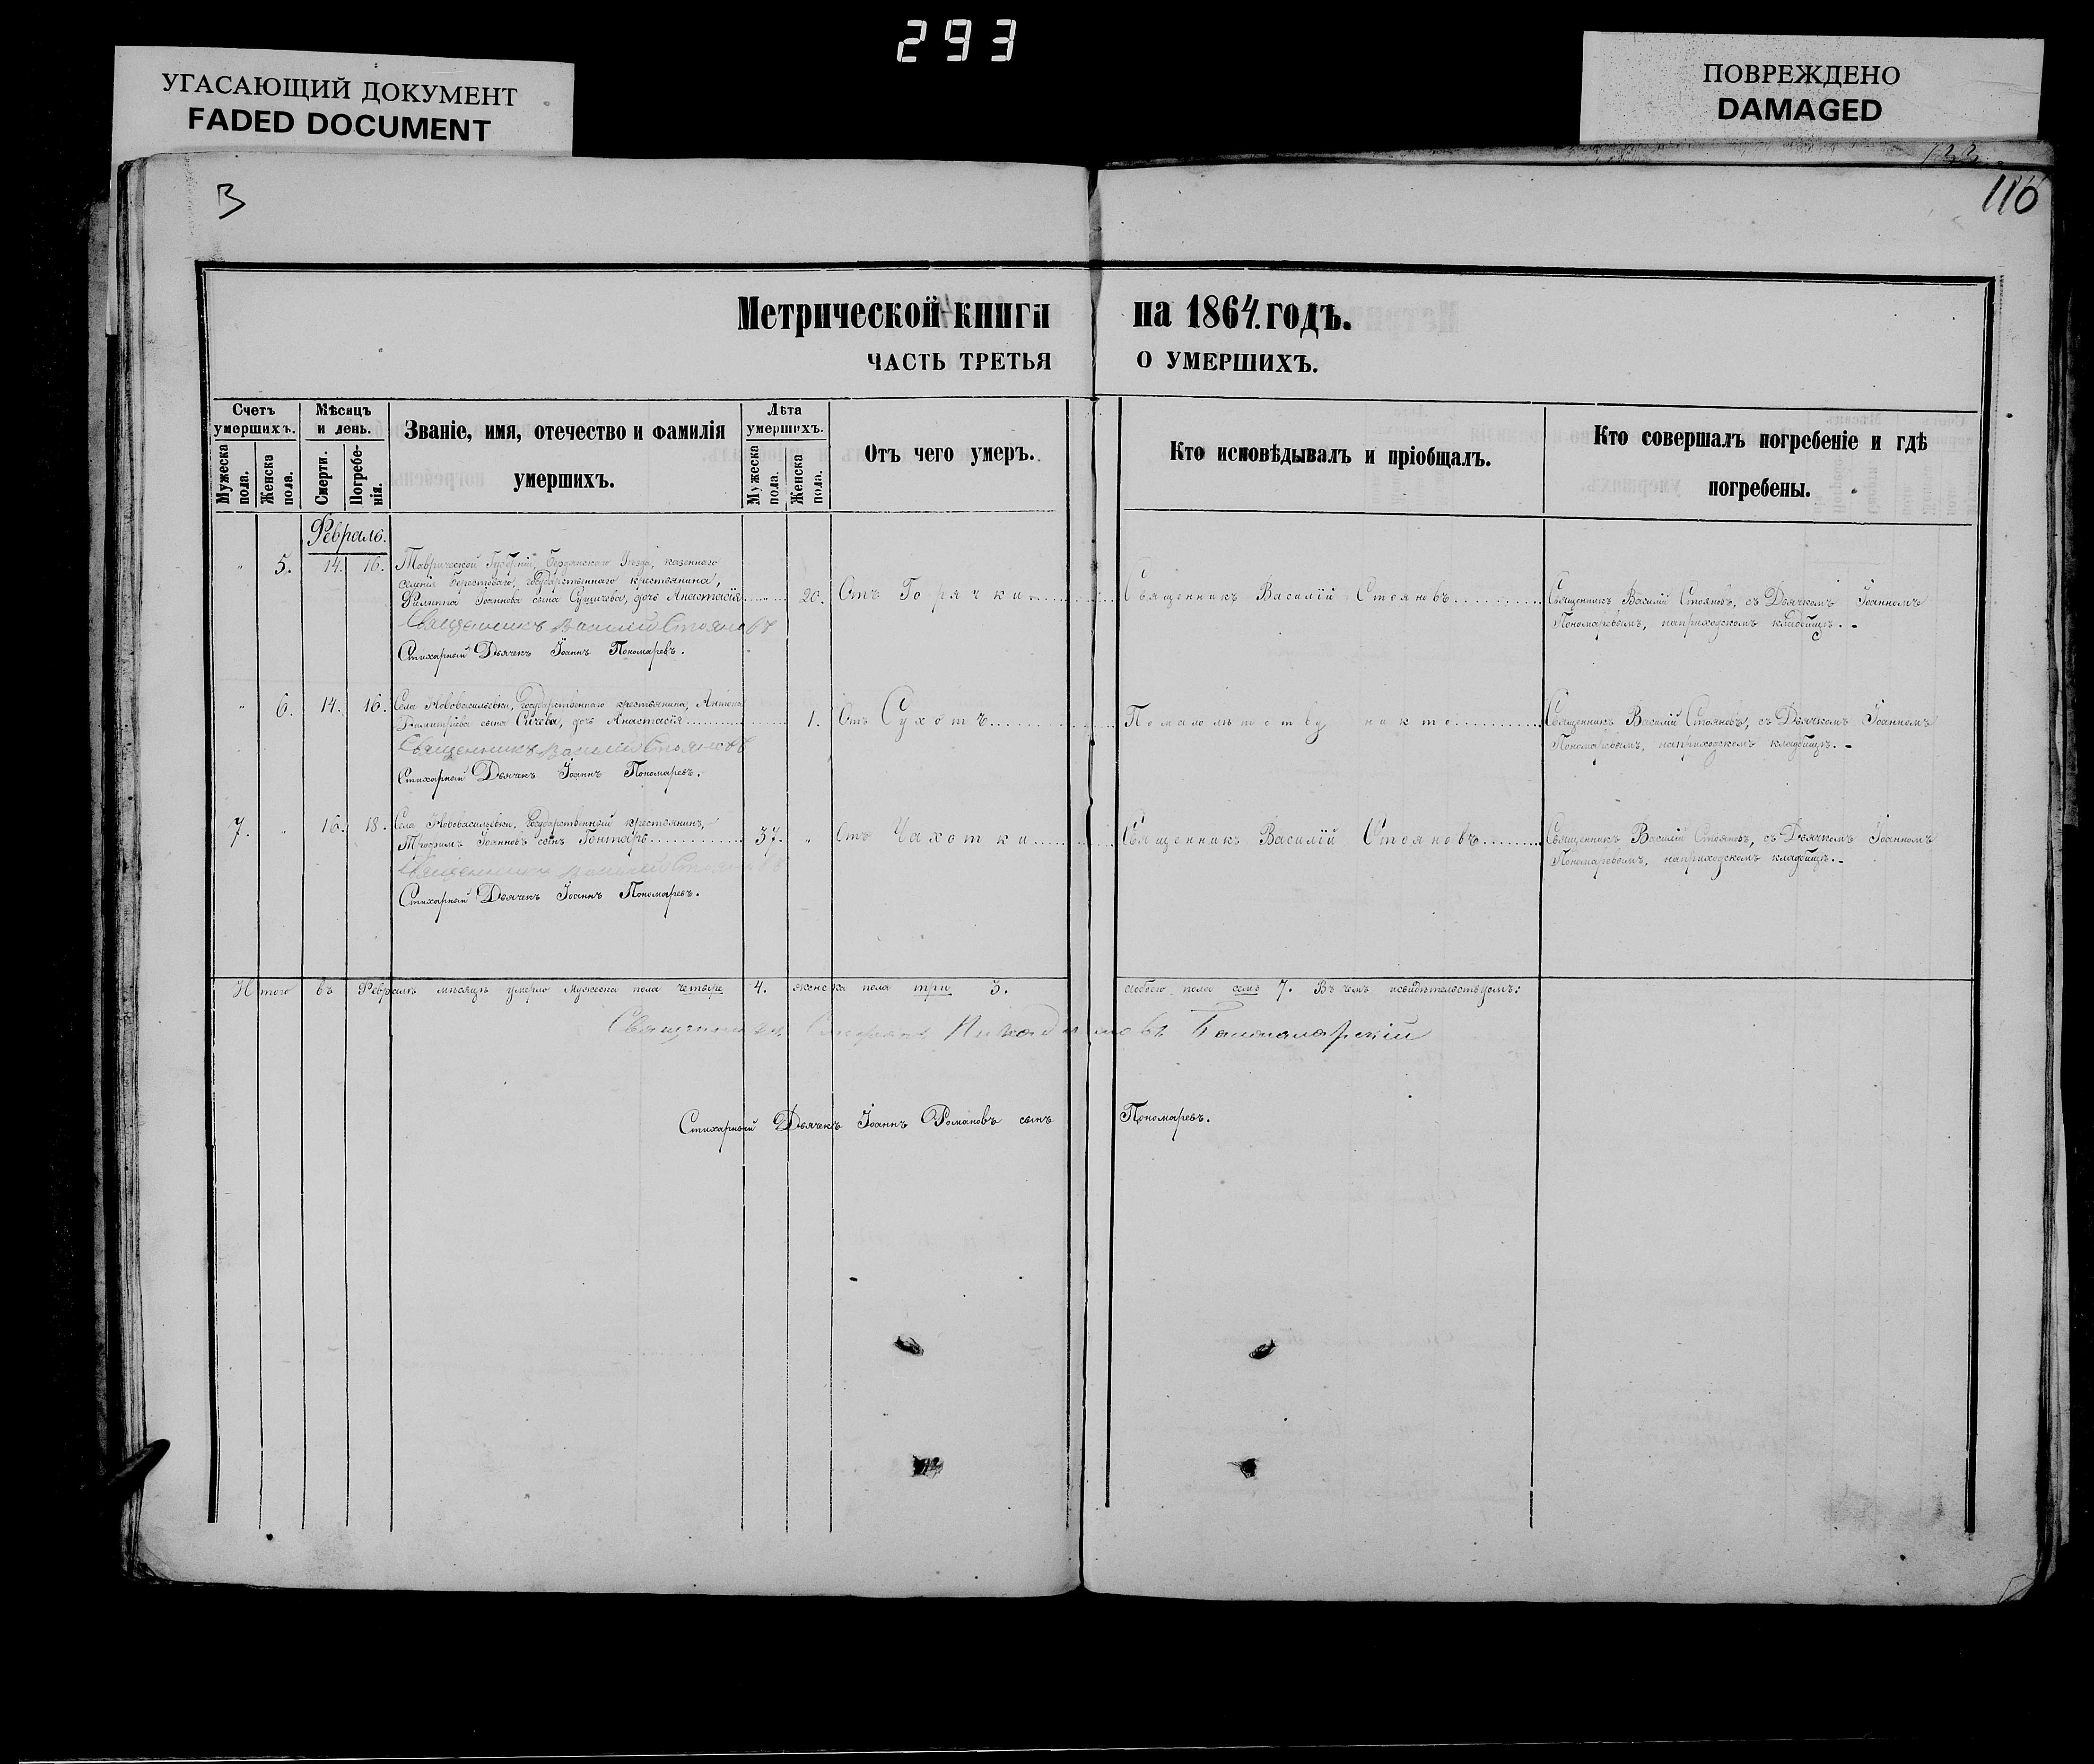 293
УГАСАЮЩИЙ ДОКУМЕНТ
FADED DOCUMENT
ПОВРЕЖДЕНО
DAMAGED
116
Метрической книги на 1864. годъ.
ЧАСТЬ ТРЕТЬЯ О УМЕРШИХЪ.
Счетъ умершихъ.
Мужеска пола.
Женска пола.
Мѣсяцъ и день.
Смерти.
Погребенія.
Званіе, имя, отечество и фамилія умершихъ.
Лѣта умершихъ.
Мужеска пола.
Женска пола.
Отъ чего умеръ.
Кто исповѣдывалъ и пріобщалъ.
Кто совершалъ погребеніе и гдѣ погребены.
Февраль.
" 5. 14. 16. Таврической Губерніи, Бердянскаго Уѣзда, казеннаго
селенія Берестоваго, Государственнаго крестьянина,
Филиппа Іоаннова сына дочь Анастасія 20. Отъ Горячки Священникъ Василій Стояновъ Священникъ Василій Стояновъ, съ Дьячкомъ Іоанномъ
Пономаревымъ, наприходскомъ кладбищѣ.
Священникъ Василій Стояновъ
Стихарный Дьячекъ Іоаннъ Пономаревъ.
" 6. 14. 16. Села Нововасильевки, Государственнаго крестьянина, Антона
сына Сичева, дочь Анастасія 1. Отъ Сухотъ Помалолѣтству никто Священникъ Василій Стояновъ, съ Дьячкомъ Іоанномъ
Пономаревымъ, наприходскомъ кладбищѣ.
Священникъ Василій Стояновъ
Стихарный Дьячекъ Іоаннъ Пономаревъ.
7. " 16. 18. Села Нововасильевки, Государственный крестьянинъ,
Трофимъ Іоанновъ сынъ Гонтарь 37. " Отъ Чахотки Священникъ Василій Стояновъ Священникъ Василій Стояновъ, съ Дьячкомъ Іоанномъ
Пономаревымъ, наприходскомъ кладбищѣ.
Священникъ Василій Стояновъ
Стихарный Дьячекъ Іоаннъ Пономаревъ.
Итого въ Февралѣ мѣсяцѣ умерло Мужеска пола четыре 4. женска пола три 3. обоего пола семь 7. Въ чемъ исвидѣтельствуемъ:
Священникъ
Стихарный Дьячекъ Іоаннъ Романовъ сынъ Пономаревъ.